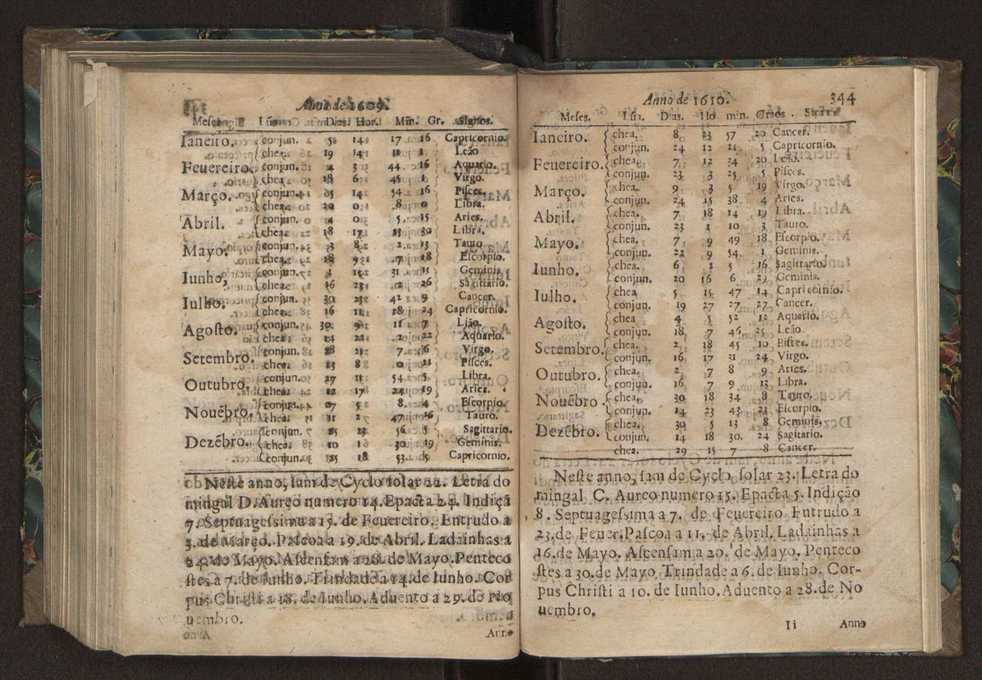 Anno de 1609.
Meses. Lũa. Dias. Hor. Min. Gr. Signos.
Ianeiro. conjun. 5 14 17 16 Capricornio.
chea. 19 14 Leão
Feuereiro. conjun. 3 44 16 Aquario.
chea. 18 6 45 1 Virgo.
Março. conjun. 14 54 16 Pisces.
chea. 20 0 8 0 Libra.
Abril. conjun. 4 0 5 15 Aries.
chea. 18 17 30 Libra.
Mayo. conjun. 3 8 2 13 Tauro
chea. 18 9 7 28 Escorpio.
Iunho. conjun. 31 11 Geminis
chea. 16 23 26 Sagittario.
Iulho. conjun. 42 9 Cancer.
chea. 16 11 18 24 Capricornio.
Agosto. conjun. 30 9 11 7 Lião.
chea. 14 22 22 Aquario.
Setembro. conjun. 28 21 7 6 Virgo.
chea. 13 8 0 21 Pisces.
Outubro. conjun. 27 11 54 5 Libra.
chea. 12 17 24 19 Aries.
Nouẽbro. conjun. 5 8 4 Escorpio.
chea. 11 2 47 Tauro.
Dezẽbro. conjun. 25 56 Sagittario.
chea. 10 16 30 19 Geminis.
conjun. 25 18 53 5 Capricornio.
Neste anno, sam de Cyclo solar 22. Letra do
mingal D. Aureo numero 14. Epacta 24. Indiçã
7. Septuagessima a 15. de Feuereiro. Entrudo a
3. de Março. Pascoa a 19. de Abril. Ladainhas a
de Mayo. Ascensam a 28. de Mayo. Penteco
stes a 7. de Iunho. Trindade a 14. de Iunho. Cor
pus Christi a 18. de Iunho. Aduento a 29. de No
uembro.
Anno
Anno de 1610. 344
Meses. Lũa. Dias. Ho min. Graos.
Ianeiro. chea. 8 23 57 20 Cancer.
conjun. 24 12 21 5 Capricornio.
Feuereiro. chea. 7 12 34 20 Leão.
conjun. 23 3 25 5 Pisces.
Março. chea. 9 3 5 19 Virgo.
conjun. 24 15 38. 4 Aries.
Abril. chea. 7 18 14 19 Libra.
conjun. 23 1 10 3 Tauro.
Mayo. chea. 7 9 49 18 Escorpio.
conjun. 22 9 54. 1 Geminis.
Iunho. chea. 6 1 5 16 Sagittario.
conjun. 20 16 6 29 Geminis.
Iulho. chea 5 15 47 14 Capricornio.
conjun. 19 27 27 27 Cancer.
Agosto. chea. 4 5 52 12 Aquario.
conjun. 18 7 46 25 Leão
Setembro. chea. 2 18 45 10 Pistes.
conjun. 16 17 21 24 Virgo.
Outubro. chea. 2 7 8 9 Aries.
conjun. 16 7 9 23 Libra.
Nouẽbro chea. 30 18 34 8 Tauro.
conjun. 14 23 43 23 Escorpio.
Dezẽbro. chea. 30 5 13 8 Geminis,
conjun. 14 18 30. 24 Sagitario.
chea. 29 15 7 8 Cancer.
Neste anno, sam de Cyclo, solar 23. Letra do
mingal C. Aureo numero 15. Epacta 5. Indição
8. Septuagessima a 7. de Feuereiro Entrudo a
23. de Feuer. Pascoa a 11. de Abril. Ladainhas a
16. de Mayo. Ascensam a 20. de Mayo. Penteco
stes a 30. de Mayo. Trindade a 6. de Iunho. Cor-
pus Christi a 10. de Iunho. Aduento a 28. de No
uembro.
Ii Anno